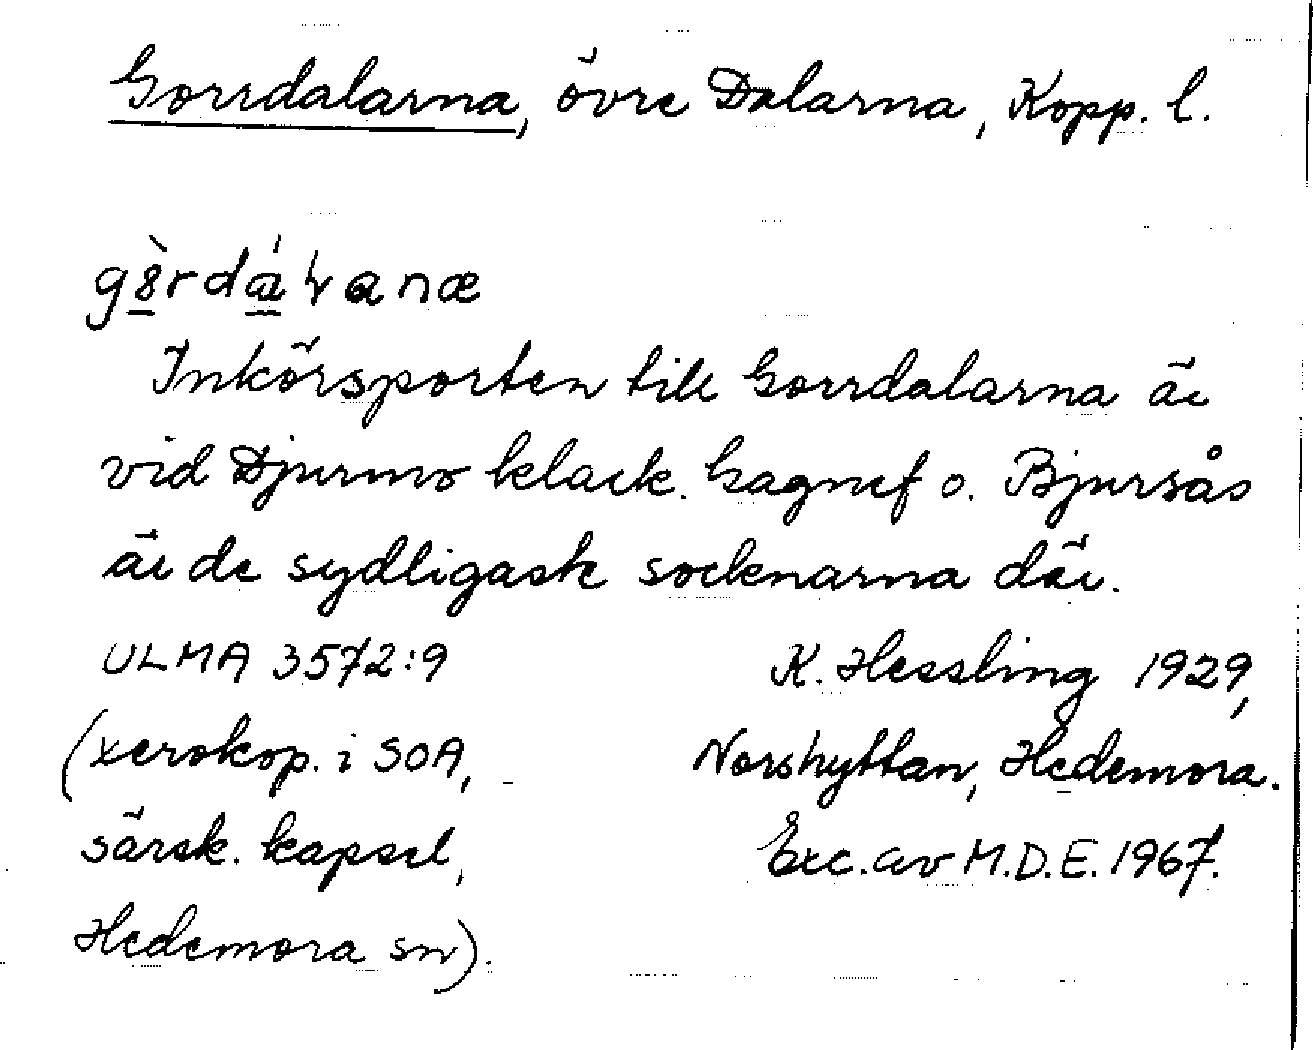 Gorrdalarna, övre Dalarna, Kopp. l.
Inkörsporten till Gorrdalarna är
vid Djurmo klack. Gagnef o. Bjursås
är de sydligaste socknarna där.
ULMA 3572:9 K. Hessling 1929,
(xerokop. i SOA, Norshyttan, Hedemora.
särsk. kapsel, Exc. av M.D.E. 1967.
Hedemora sn).